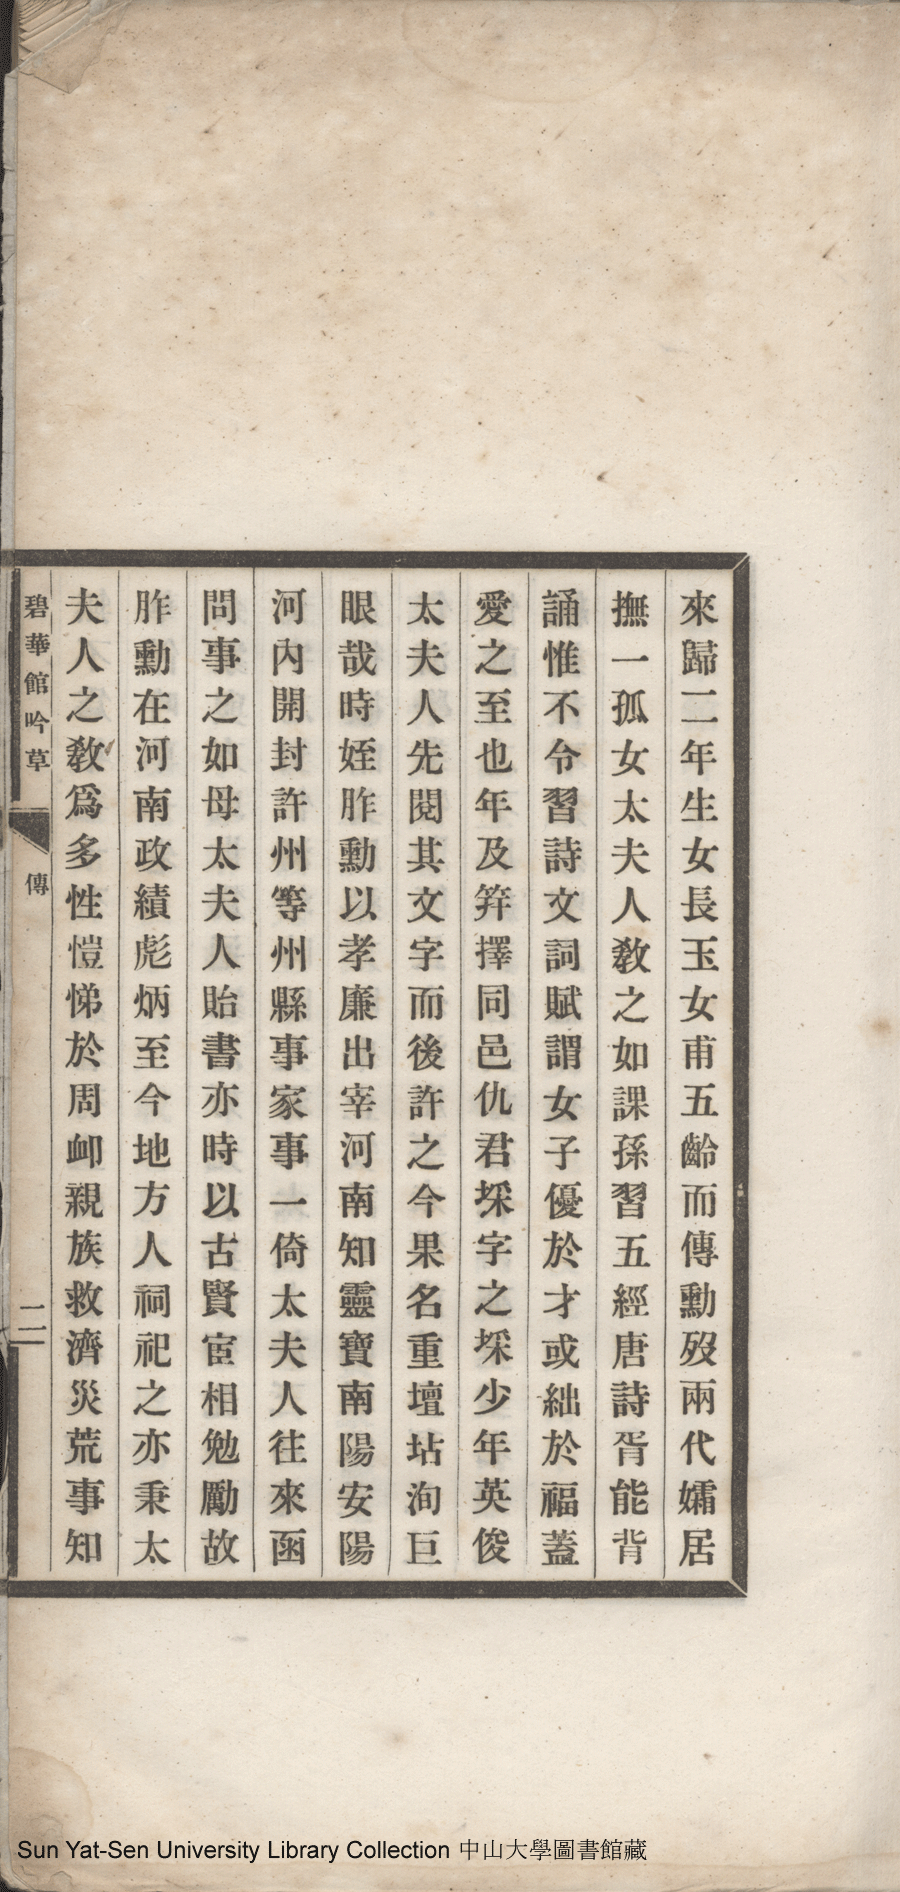 來歸二年生女長玉女甫五齡而傳勳歿兩代孀居
撫一孤女太夫人敎之如課孫習五經唐詩胥能背
誦惟不令習詩文詞賦謂女子優於才或絀於福蓋
愛之至也年及笄擇同邑仇君埰字之埰少年英俊
太夫人先閱其文字而後許之今果名重壇坫洵巨
眼哉時姪胙勳以孝廉出宰河南知靈寶南陽安陽
河內開封許州等州縣事家事一倚太夫人往來函
問事之如母太夫人貽書亦時以古賢宦相勉勵故
胙勳在河南政績彪炳至今地方人祠祀之亦秉太
夫人之敎爲多性愷悌於周卹親族救濟災荒事知
碧華館吟草 傳 二
Sun Yat-Sen University Library Collection 中山大學圖書館藏